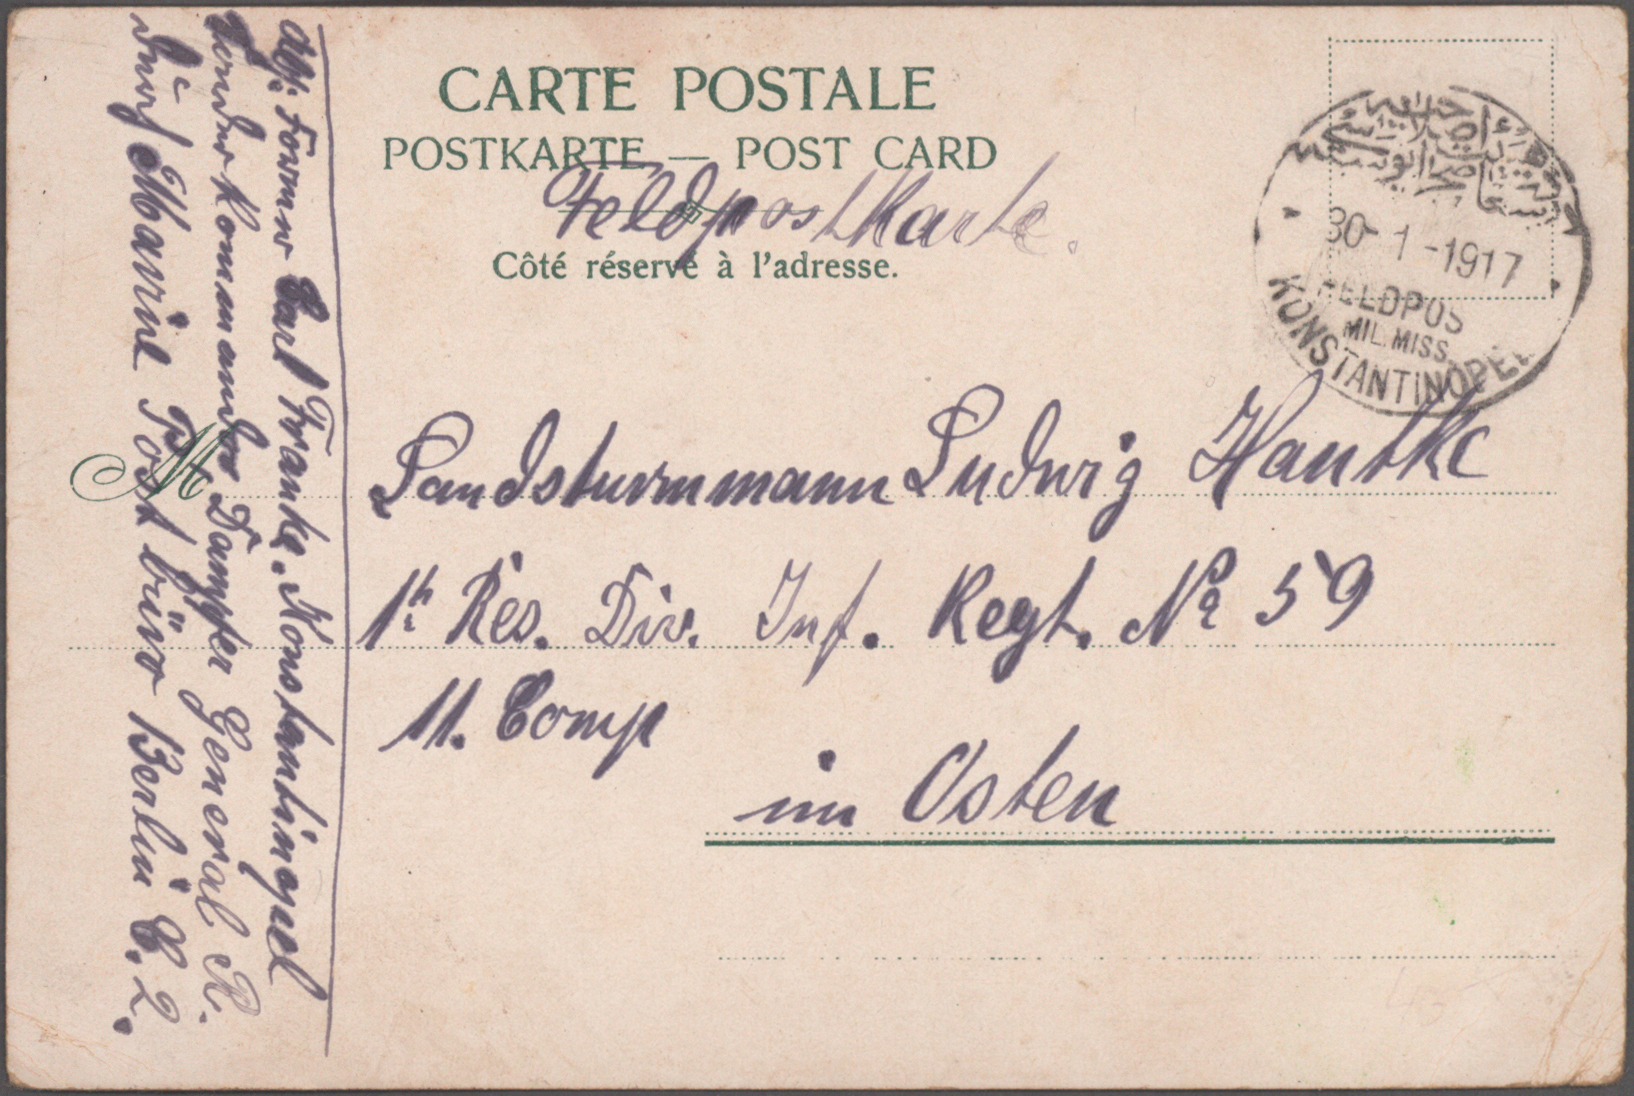 CARTE POSTALE
POSTKARTE — POST CARD
Feldpostkarte.
Côté réservé à l'adresse.
30-1-1917
FELDPOS
MIL. MISS.
KONSTANTINOPEL
M
Landsturmmann Ludwig Hantke
1te Res. Div. Inf. Regt. No 59
11. Comp
im Osten
Abs: Carl Franke. Konstantinopel
Sonder Kommando Dampfer General R.
Durch Marine Postbüro Berlin C. 2.